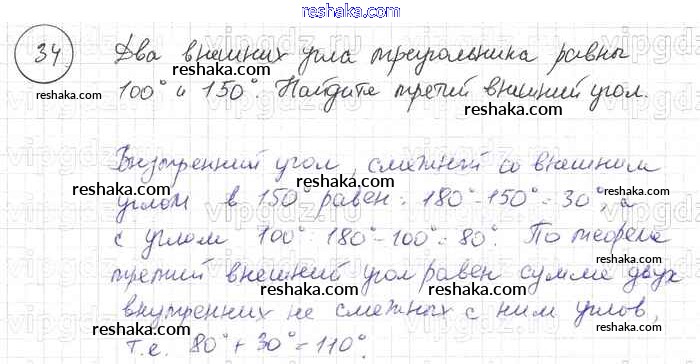 reshaka.com
34 Два внешних угла треугольника равны
100° и 150°. Найдите третий внешний угол.
reshaka.com reshaka.com reshaka.com
Внутренний угол, смежный со внешним
углом в 150° равен: 180°-150°=30°, а
reshaka.com reshaka.com
с углом 100° 180°-100°=80°. По теореме
третий внешний угол равен сумме двух
reshaka.com reshaka.com
внутренних не смежных с ним углов,
reshaka.com
т.е. 80°+30°=110°.
reshaka.com